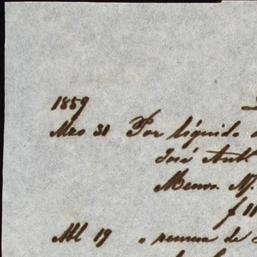 1859
Mço 31 Por líquido
José Ant.
Menos M.
f 11
Abl 19 " remessa de